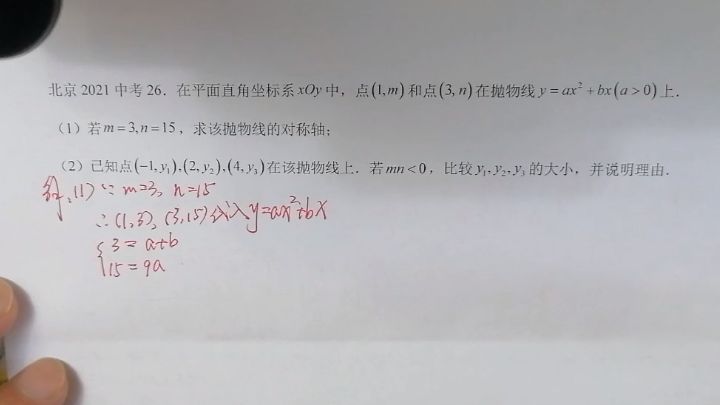 北京 2021 中考 26．在平面直角坐标系 xOy 中，点(1,m)和点(3,n)在抛物线 y=ax²+bx(a>0)上．
（1）若 m=3,n=15，求该抛物线的对称轴；
（2）已知点(-1,y₁),(2,y₂),(4,y₃)在该抛物线上．若 mn<0，比较 y₁,y₂,y₃ 的大小，并说明理由．
解,(1) ∵ m=3, n=15
∴ (1,3), (3,15)代入y=ax²+bx
{3=a+b
15=9a